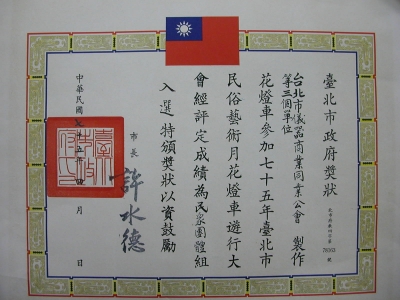 臺北市政府獎狀
北市
78203
號
台北市儀器商業同業公會
等三個單位
製作
花燈車參加七十五年臺北市
民俗藝術月花燈車遊行大
會經評定成績為民眾團體組
入選特頒獎狀以資鼓勵
市長
許水德
中華民國
年
月
日